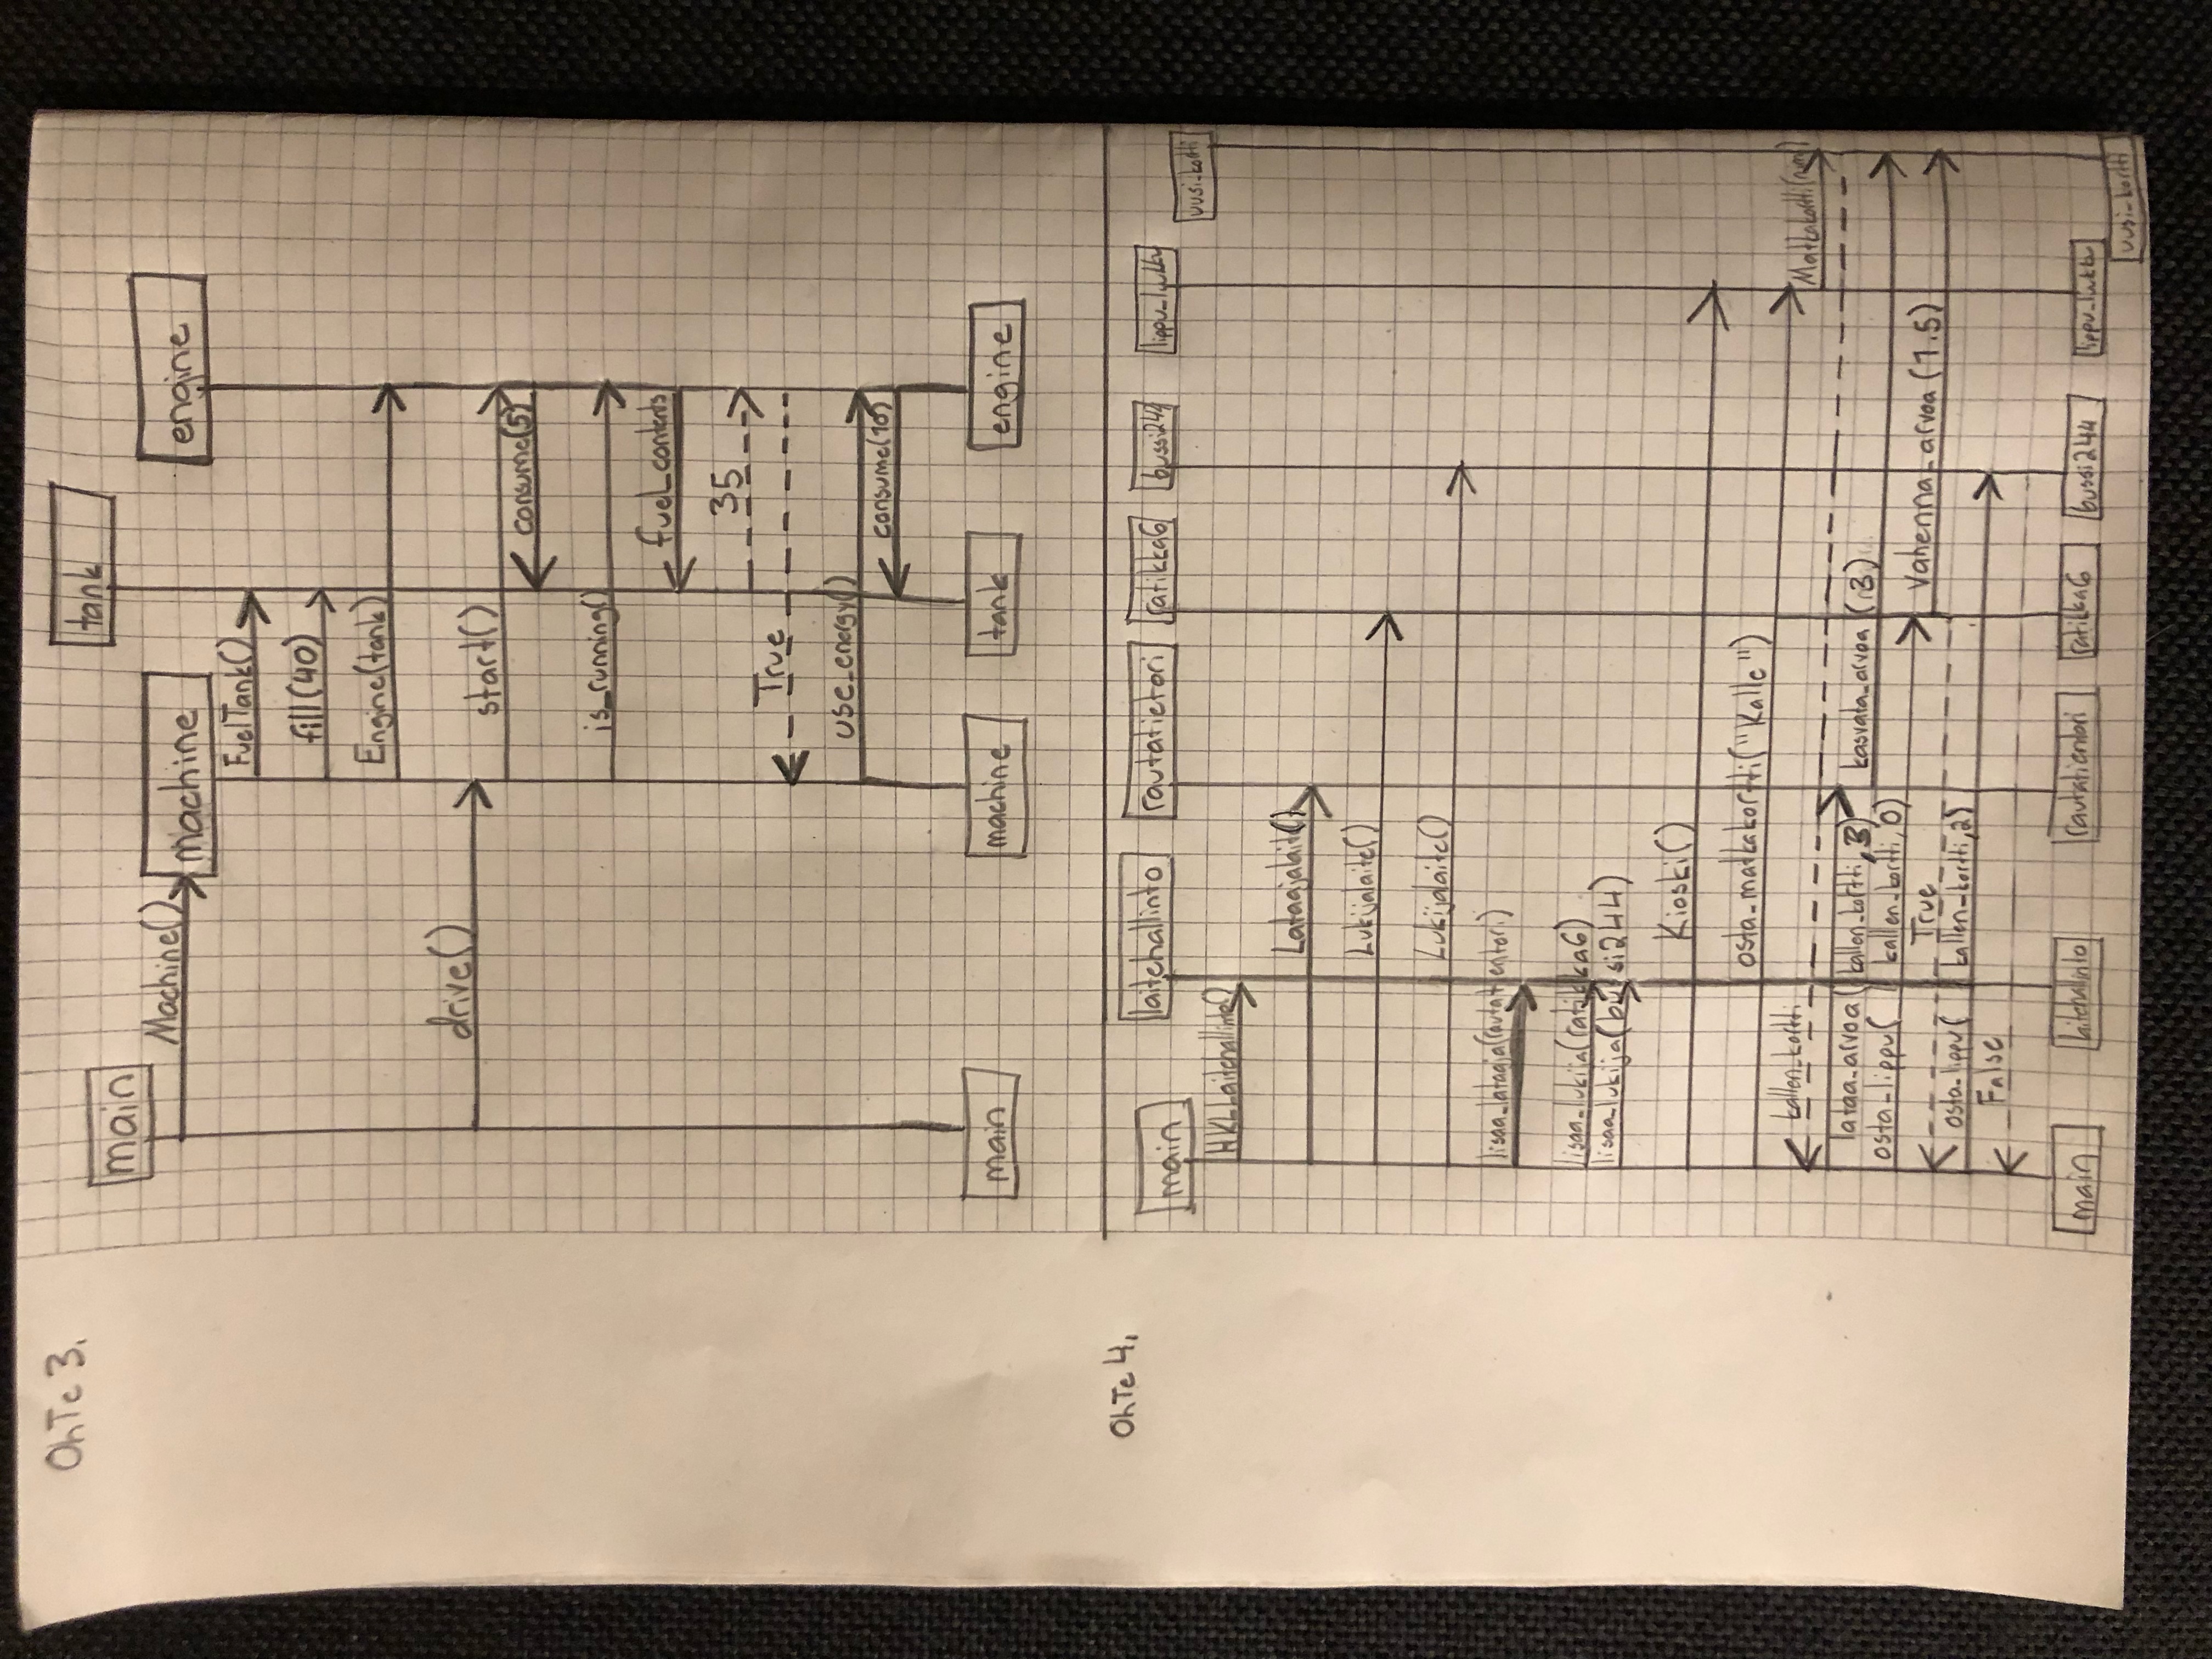 OhTe 3.
main
tank
Machine()
machine
engine
FuelTank()
fill(40)
Engine(tank)
drive()
start()
consume(5)
is_running()
fuel_contents
35
True
use_energy()
consume(10)
main machine tank engine
OhTe 4.
main laitehallinto rautatietori ratikka6 bussi244 lippu_luukku
uusi_kortti
HKLLaitehallinto()
Lataajalaite()
Lukijalaite()
Lukijalaite()
lisaa_lataaja(rautatientori)
lisaa_lukija(ratikka6)
lisaa_lukija(bussi244)
Kioski()
osta_matkakortti("Kalle")
kallen_kortti
Matkakortti(nimi)
lataa_arvoa(kallen_kortti,3) kasvata_arvoa (3)
osta_lippu( kallen_kortti,0)
True
vahenna_arvoa (1.5)
osta_lippu( kallen_kortti,2)
False
main laitehallinto rautatientori ratikka6 bussi244 lippu_luukku
uusi_kortti